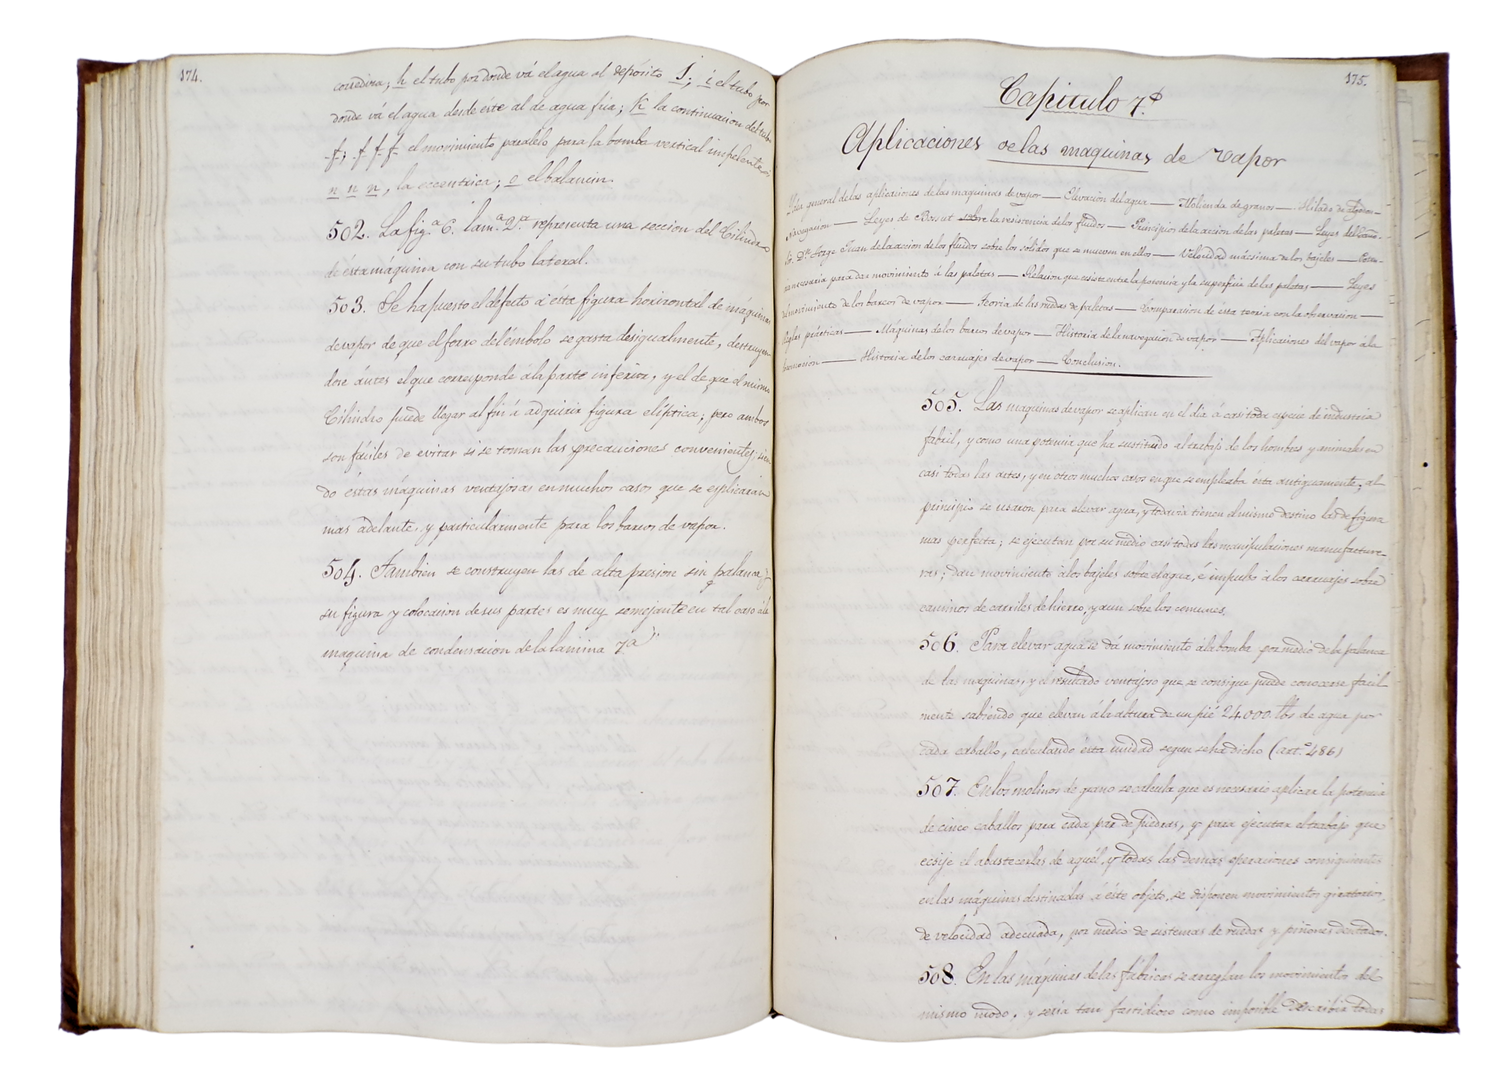 174.
corredera; h el tubo por donde vá el agua al depósito J; i el tubo por
donde vá el agua desde éste al de agua fria; k la continuacion del tubo
f; f f f el movimiento paralelo para la bomba vertical impelente;
n n n, la eccentrica; o el balancin.
502. La fig.ª 6.ª lam.ª 2.ª representa una seccion del Cilindro
de ésta máquina con su tubo lateral.
503. Se ha puesto el defecto á ésta figura horizontal de máquinas
de vapor de que el forro del émbolo se gasta desigualmente, destruyen
dose ántes el que corresponde á la parte inferior, y el de que el mismo
Cilindro puede llegar al fin á adquirir figura elíptica; pero ambos
son fáciles de evitar si se toman las precauciones convenientes, sien
do éstas máquinas ventajosas en muchos casos que se esplicarán
mas adelante, y particularmente para los barcos de vapor.
504. Tambien se construyen las de alta presion sin palanca, y
su figura y colocacion de sus partes es muy semejante en tal caso á la
maquina de condensacion de la lámina 7ª
175.
Capitulo 7.º
Aplicaciones de las maquinas de vapor
Idea general de las aplicaciones de las maquinas de vapor — Elevacion del agua — Molienda de granos — Hilado de algodon —
Navegacion — Leyes de Bossut sobre la resistencia de los fluidos — Principios de la accion de las paletas — Leyes del
D.n Jorge Juan de la accion de los fluidos sobre los sólidos que se mueven en ellos — Velocidad máxima de los bajeles —
necesaria para dar movimiento á las paletas — Relacion que existe entre la potencia y la superficie de las paletas — Leyes
del movimiento de los barcos de vapor — Teoria de las ruedas de paletas — Comparacion de esta teoria con la observacion —
Reglas prácticas — Máquinas de los barcos de vapor — Historia de la navegacion de vapor — Aplicaciones del vapor á la
— Historia de los carruajes de vapor — Conclusion.
505. Las maquinas de vapor se aplican en el dia á casi toda especie de industria
fabril, y como una potencia que ha sustituido al trabajo de los hombres y animales en
casi todas las artes, y en otros muchos casos en que se empleaba ésta antiguamente; al
principio se usaron para elevar agua, y todavia tienen el mismo destino las de figura
mas perfecta; se ejecutan por su medio casi todas las manipulaciones manufacture-
ras; dan movimiento á los bajeles sobre el agua, é impulso á los carruajes sobre
caminos de carriles de hierro, y aun sobre los comunes.
506. Para elevar agua se dá movimiento á la bomba por medio de la palanca
de las maquinas, y el resultado ventajoso que se consigue puede conocerse facil
mente sabiendo que elevan á la altura de un pié 24.000 lbs de agua por
cada caballo, calculando ésta unidad segun se ha dicho (art.º 486)
507. En los molinos de grano se calcula que es necesario aplicar la potencia
de cinco caballos para cada par de piedras, y para ejecutar el trabajo que
ecsije el abastecerlas de aquél, y todas las demas operaciones consiguientes
en las máquinas destinadas á éste objeto, se disponen movimientos giratorios
de velocidad adecuada, por medio de sistemas de ruedas y piñones dentados.
508. En las máquinas de las fábricas se arreglan los movimientos del
mismo modo, y seria tan fastidioso como imposible describir todas